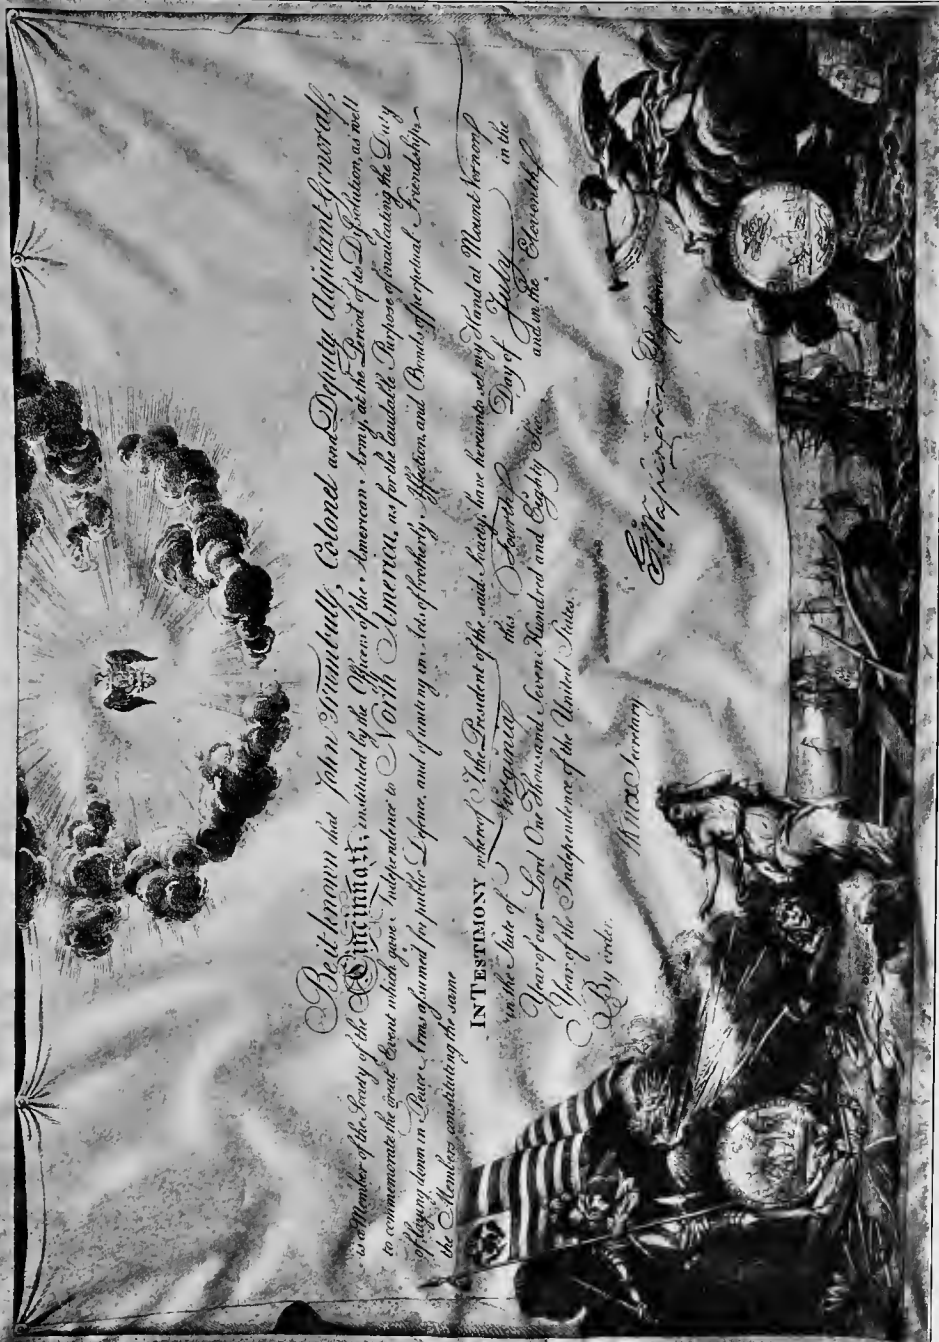 Be it known that John Trumbull, Colonel and Deputy Adjutant General,
is a Member of the Society of the Cincinnati; instituted by the Officers of the American Army, at the Period of its Dissolution, as well
to commemorate the great Event which gave Independence to North America, as for the laudable Purpose of inculcating the Duty
of laying down in Peace Arms assumed for public Defence, and of uniting in Acts of brotherly Affection, and Bonds of perpetual Friendship
the Members constituting the same
IN TESTIMONY whereof I, the President of the said Society, have hereunto set my Hand at Mount Vernon
in the State of Virginia this Fourth Day of July in the
Year of our Lord One Thousand Seven Hundred and Eighty Six and in the Eleventh
Year of the Independence of the United States.
By order,
G. Washington President
Knox Secretary